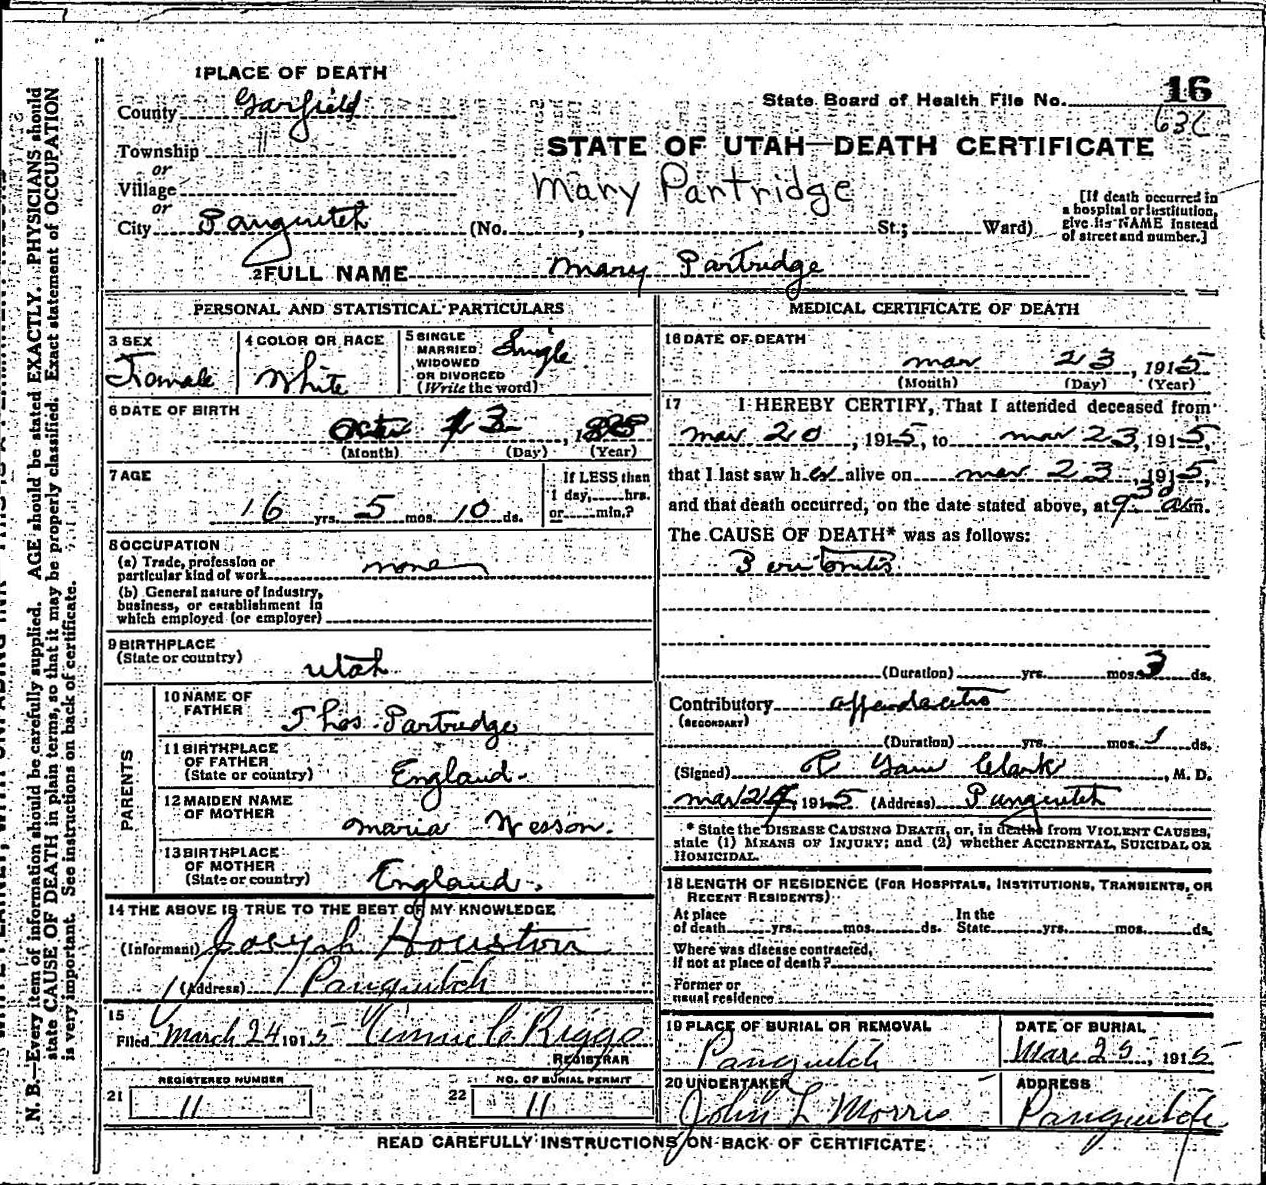 1 PLACE OF DEATH
County Garfield
State Board of Health File No. 16
Township
or
Village
or
City Panguitch
STATE OF UTAH—DEATH CERTIFICATE
Mary Partridge
(No. , St.; Ward)
[If death occurred in
a hospital or institution,
give its NAME instead
of street and number.]
2 FULL NAME Mary Partridge
PERSONAL AND STATISTICAL PARTICULARS
3 SEX
Female
4 COLOR OR RACE
White
5 SINGLE
MARRIED
WIDOWED
OR DIVORCED
(Write the word)
Single
6 DATE OF BIRTH
13
(Month) (Day) (Year)
7 AGE
16 yrs. 5 mos. 10 ds.
If LESS than
1 day, hrs.
or min.?
8 OCCUPATION
(a) Trade, profession or
particular kind of work none
(b) General nature of Industry,
business, or establishment in
which employed (or employer)
9 BIRTHPLACE
(State or country) Utah
PARENTS
10 NAME OF
FATHER Thos. Partridge
11 BIRTHPLACE
OF FATHER
(State or country) England.
12 MAIDEN NAME
OF MOTHER Maria Wesson.
13 BIRTHPLACE
OF MOTHER
(State or country) England.
14 THE ABOVE IS TRUE TO THE BEST OF MY KNOWLEDGE
(Informant) Joseph Houston
(Address) Panguitch
15
Filed March 24 1915 Riggs
REGISTRAR
REGISTERED NUMBER
21 11
NO. OF BURIAL PERMIT
22 11
MEDICAL CERTIFICATE OF DEATH
16 DATE OF DEATH
Mar 23, 1915
(Month) (Day) (Year)
17 I HEREBY CERTIFY, That I attended deceased from
Mar 20, 1915, to Mar 23, 1915,
that I last saw her alive on Mar 23, 1915,
and that death occurred, on the date stated above, at 9 30 am.
The CAUSE OF DEATH* was as follows:
Peritonitis
(Duration) yrs. mos. 3 ds.
Contributory appendacitis
(SECONDARY)
(Duration) yrs. mos. 1 ds.
(Signed) R Clark, M. D.
Mar 24, 1915 (Address) Panguitch
* State the DISEASE CAUSING DEATH, or, in deaths from VIOLENT CAUSES,
state (1) MEANS OF INJURY; and (2) whether ACCIDENTAL, SUICIDAL OR
HOMICIDAL.
18 LENGTH OF RESIDENCE (FOR HOSPITALS, INSTITUTIONS, TRANSIENTS, OR
RECENT RESIDENTS)
At place
of death yrs. mos. ds.
In the
State yrs. mos. ds.
Where was disease contracted,
if not at place of death?
Former or
usual residence
19 PLACE OF BURIAL OR REMOVAL
Panguitch
DATE OF BURIAL
Mar. 25, 1915
20 UNDERTAKER
John L Morris
ADDRESS
Panguitch
READ CAREFULLY INSTRUCTIONS ON BACK OF CERTIFICATE
N. B.—Every item of information should be carefully supplied. AGE should be stated EXACTLY. PHYSICIANS should
state CAUSE OF DEATH in plain terms, so that it may be properly classified. Exact statement of OCCUPATION
is very important. See instructions on back of certificate.